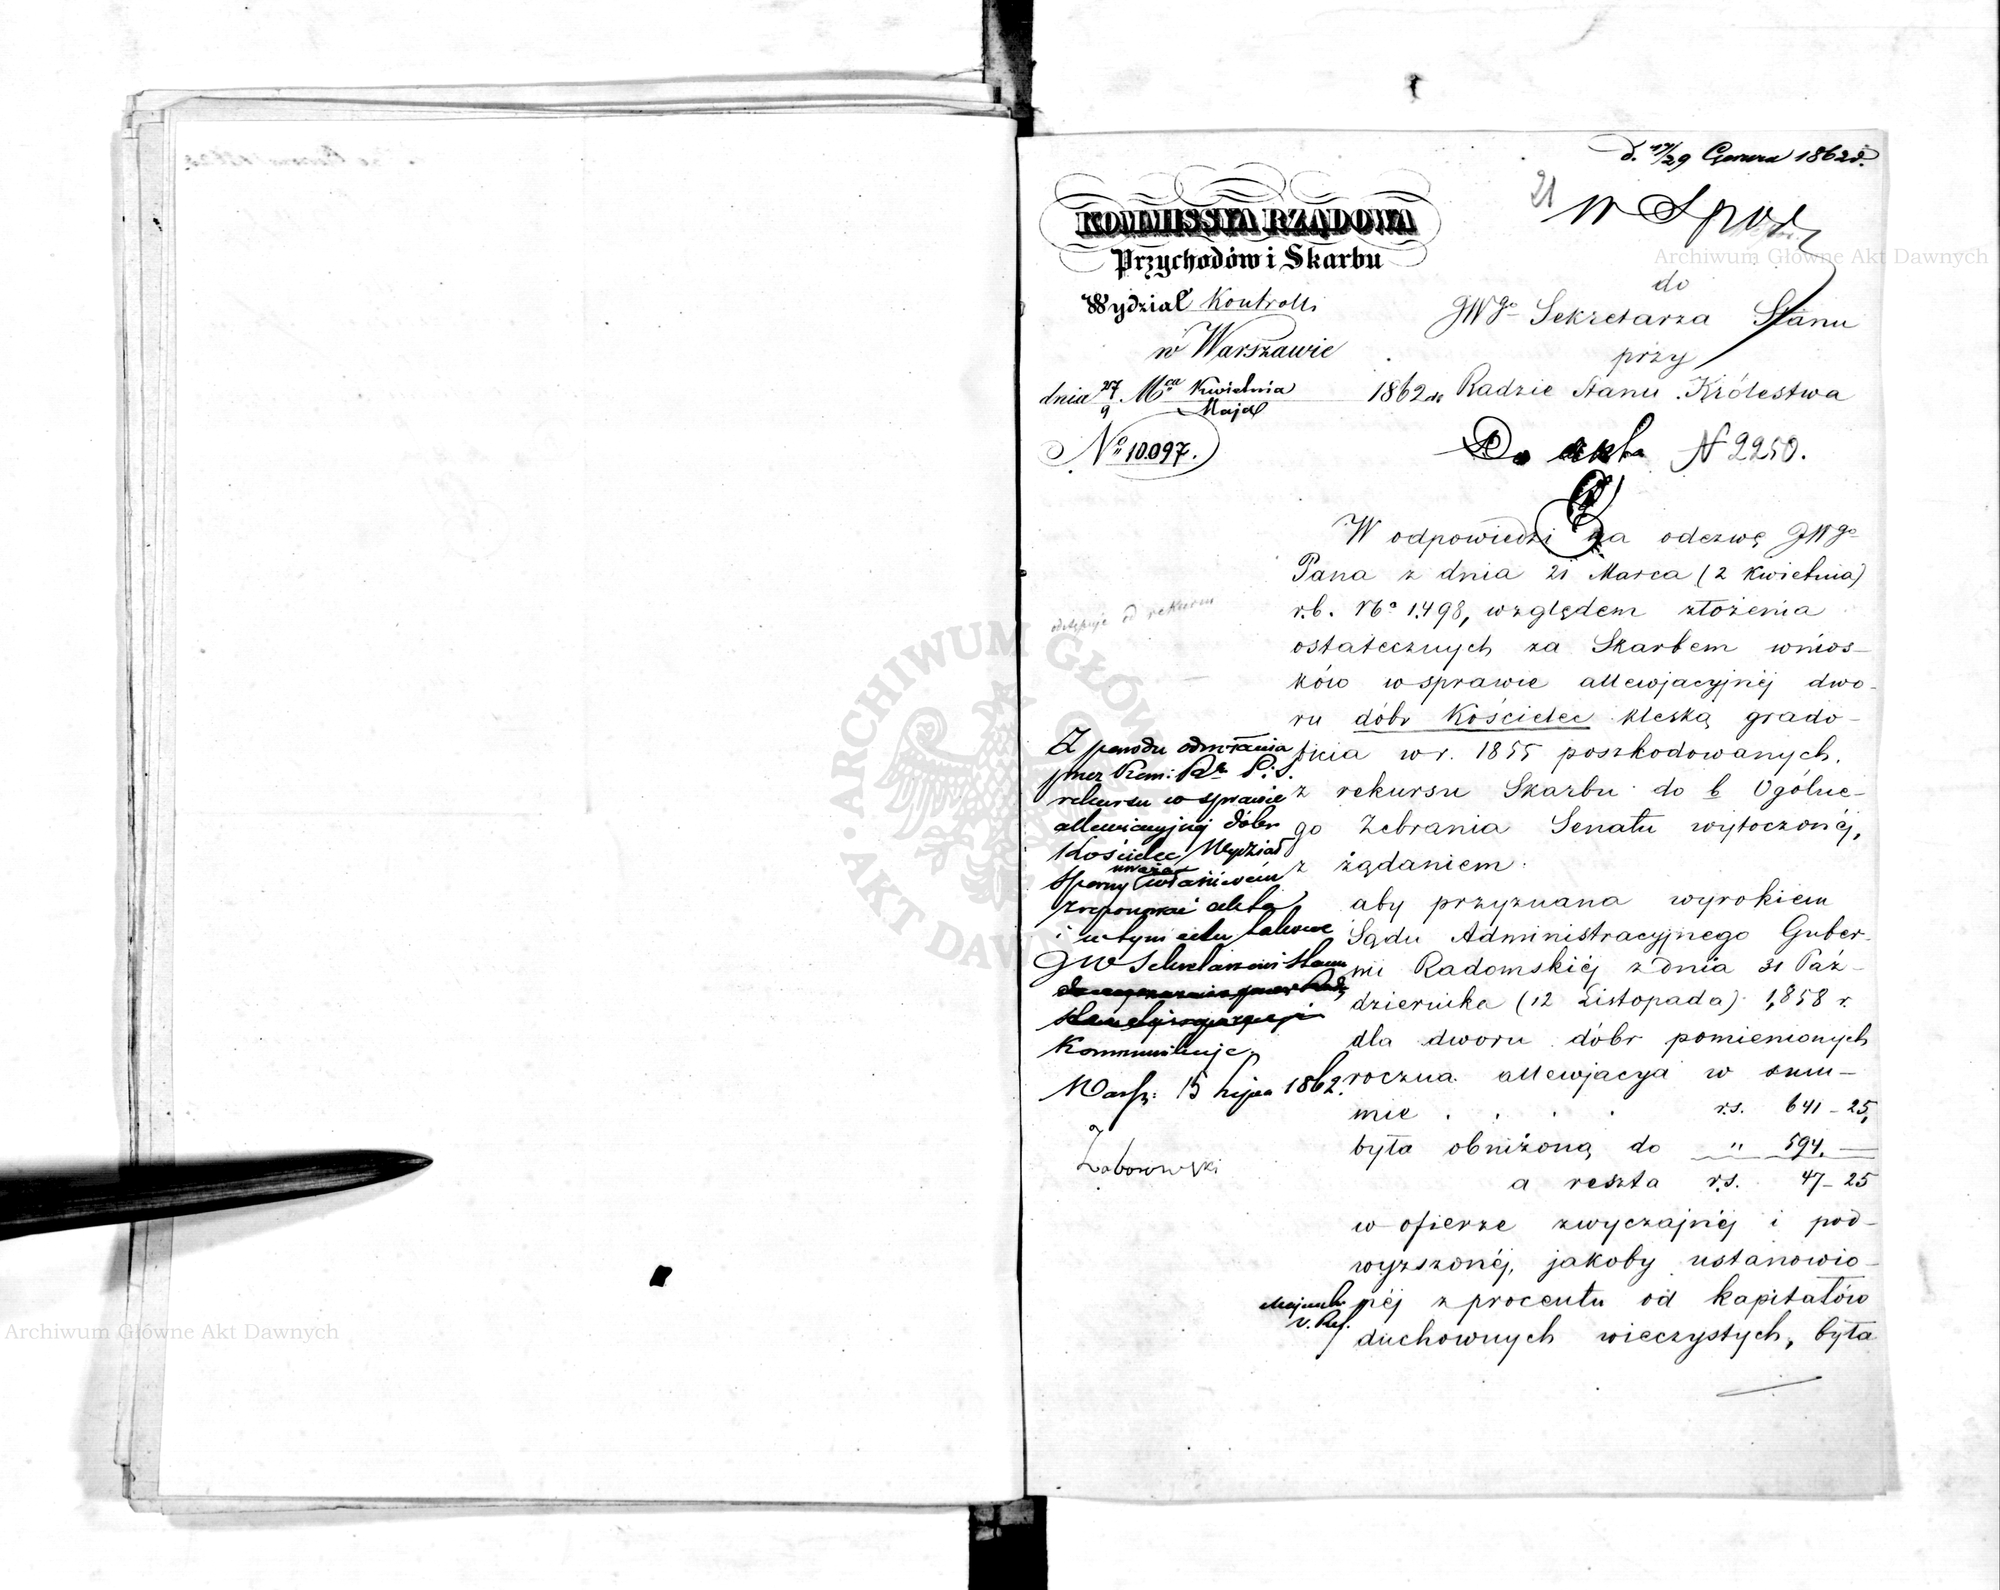 d. 17/29 Czerwca 1862 r.
21
W Spor.
KOMMISSYA RZĄDOWA
Przychodów i Skarbu
Wydział Kontrolli
w Warszawie
dnia 27/9 Mca Kwietnia/Maja 1862 r.
No 10.097.
do
JWgo Sekretarza Stanu
przy
Radzie Stanu Królestwa
Do akt N 2250.
W odpowiedzi na odezwę JWgo
Pana z dnia 21 Marca (2 Kwietnia)
r.b. No 1,498, względem złożenia
ostatecznych za Skarbem wnios-
ków w sprawie allewjacyjnéj dwo-
ru dóbr Kościelec klęską grado-
bicia w r. 1855 poszkodowanych,
z rekursu Skarbu do b. Ogólne-
go Zebrania Senatu wytoczonéj,
z żądaniem
aby przyznana wyrokiem
Sądu Administracyjnego Guber-
nii Radomskiéj z dnia 31 Paź-
dziernika (12 Listopada) 1,858 r.
dla dworu dóbr pomienionych
roczna allewjacya w sum-
mie . . . . r.s. 641 - 25,
była obniżoną do " 594. —
a reszta r.s. 47 - 25
w ofierze zwyczajnéj i pod-
wyższonéj, jakoby ustanowio-
néj z procentu od kapitałów
duchownych wieczystych, była
odstępuje od rekursu
Z powodu odwołania
przez Kom: Rz. P. i S.
rekursu w sprawie
allewiacyjnéj dóbr
Kościelec, Wydział
Sporny uważa właściwém
zreponować akta
i w tym celu takowe
JW Sekretarzowi Stanu
Kommunikuje
Warsz: 15 Lipca 1862.
Zaborowski
V. Ref.
Archiwum Główne Akt Dawnych
Archiwum Główne Akt Dawnych
ARCHIWUM GŁÓWNE AKT DAWNYCH